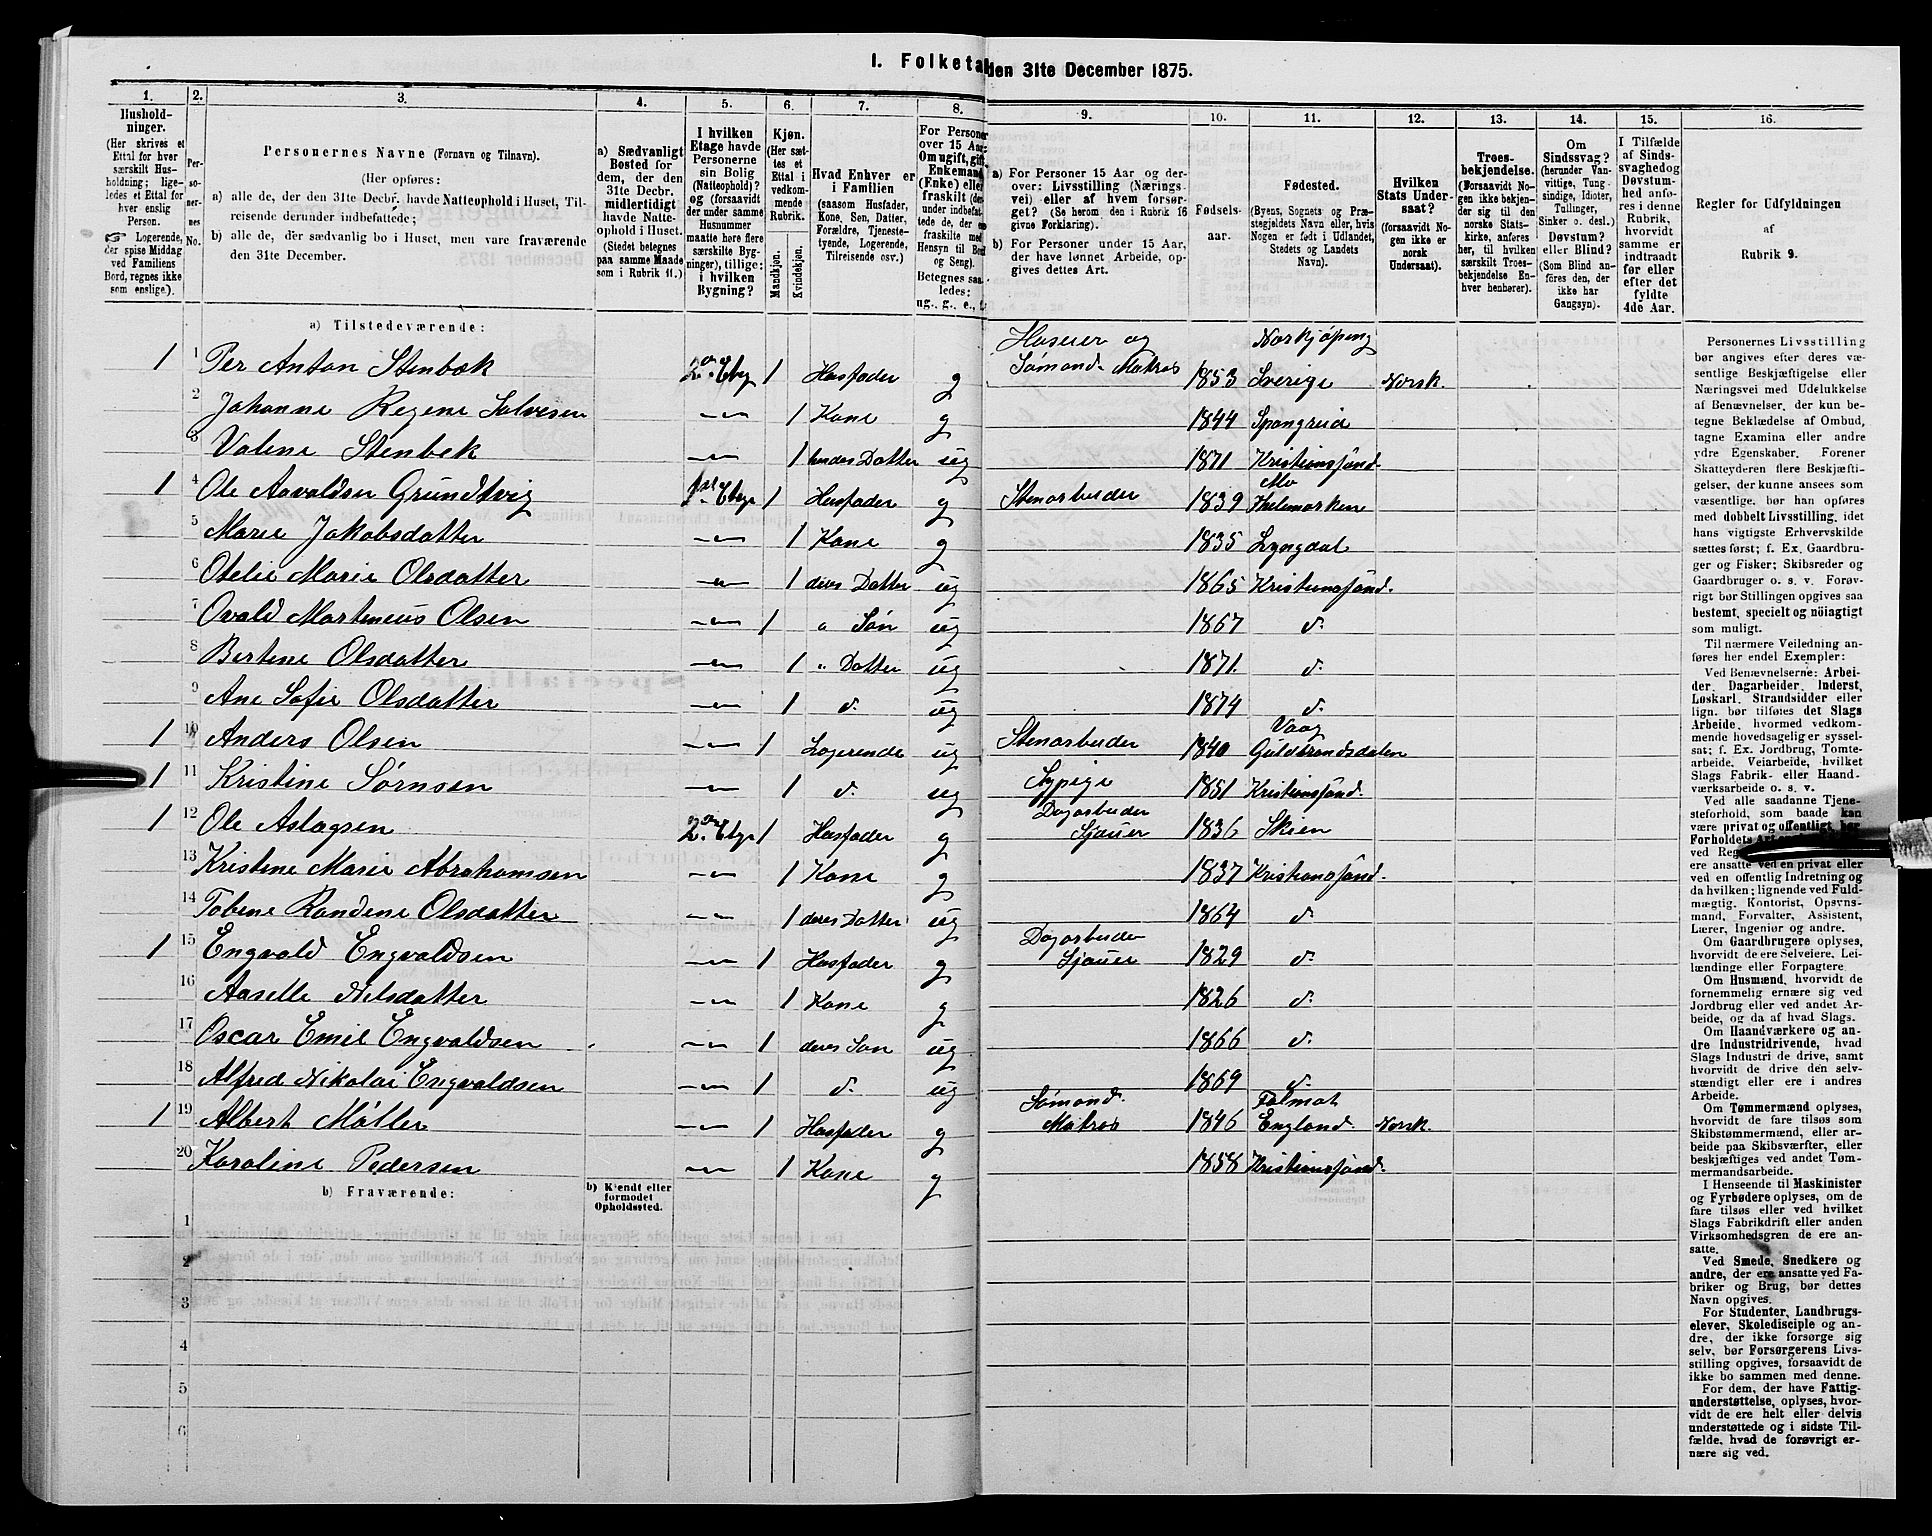 I. Folketæ
den 31te December 1875.
1. 2. 3. 4. 5. 6. 7. 8. 9. 10. 11. 12. 13. 14. 15. 16.
Hushold-
ninger.
(Her skrives et
Ettal for hver
særskilt Hus-
holdning; lige-
ledes et Ettal for
hver enslig
Person.
☞ Logerende,
der spise Middag
ved Familiens
Bord, regnes ikke
som enslige.).
Per-
so-
ner-
nes
No.
Personernes Navne (Fornavn og Tilnavn).
(Her opføres:
a) alle de, der den 31te Decbr. havde Natteophold i Huset, Til-
reisende derunder indbefattede;
b) alle de, der sædvanlig bo i Huset, men vare fraværende
den 31te December.
a) Sædvanligt
Bosted for
dem, der den
31te Decbr.
midlertidigt
havde Natte-
ophold i Huset.
(Stedet betegnes
paa samme Maade
som i Rubrik 11.)
I hvilken
Etage havde
Personerne
sin Bolig
(Natteophold)?
og (forsaavidt
der under samme
Husnummer
maatte høre flere
særskilte Byg-
ninger), tillige:
i hvilken
Bygning?
Kjøn.
(Her sæt-
tes et
Ettal i
vedkom-
mende
Rubrik.
Mandkjøn.
Kvindekjøn.
Hvad Enhver er
i Familien
(saasom Husfader,
Kone, Søn, Datter,
Forældre, Tjeneste-
tyende, Logerende,
Tilreisende osv.)
For Persone
over 15 Aar:
Om ugift, gift,
Enkemand
(Enke) eller
fraskilt (de
under indbefat-
tede de, der er
fraskilte med
Hensyn til Bord
og Seng).
Betegnes saa-
ledes:
ug., g., e., f.
a) For Personer 15 Aar og der-
over: Livsstilling (Nærings-
vei) eller af hvem forsør-
get? (Se herom den i Rubrik 16
givne Forklaring).
b) For Personer under 15 Aar,
der have lønnet Arbeide, op-
gives dettes Art.
Fødsels-
aar.
Fødested.
(Byens, Sognets og Præ-
stegjeldets Navn eller, hvis
Nogen er født i Udlandet,
Stedets og Landets
Navn).
Hvilken
Stats Under-
saat?
(forsaavidt No-
gen ikke er
norsk
Undersaat).
Troes-
bekjendelse.
(Forsaavidt No-
gen ikke bekjen-
der sig til den
norske Stats-
kirke, anføres
her, til hvilken
særskilt Troes-
bekjendelse En-
hver henhører).
Om
Sindssvag?
(herunder Van-
vittige, Tung-
sindige, Idioter,
Tullinger,
Sinker o. desl.)
Døvstum?
eller Blind?
(Som Blind an-
føres den, der
ikke har
Gangsyn).
I Tilfælde
af Sinds-
svaghed og
Døvstum-
hed anfø-
res i denne
Rubrik,
hvorvidt
samme er
indtraadt
før eller
efter det
fyldte
4de Aar.
Regler for Udfyldningen
af
Rubrik 9.
a) Tilstedeværende:
1 1 Per Anton Stenbæk 2den Etage 1 Husfader g Huseier og Sømand Matros 1853 Norkjøping Sverige Norsk.
2 Johanne Regene Salvesen 1 Kone g 1844 Spangreid
3 Valene Stenbek 1 hendes Datter ug 1871 Kristiansand
1 4 Ole Aavaldsen Grundtvig 1ste Etage 1 Husfader g Stenarbeider 1839 Mo Thelemarken
5 Marie Jakobsdatter 1 Kone g 1835 Lyngdal
6 Otelie Marie Olsdatter 1 deres Datter ug 1865 Kristiansand.
7 Ovald Martineus Olsen 1 " Søn ug 1867 d.
8 Bertine Olsdatter 1 " Datter ug 1871. d.
9 Ane Sofie Olsdatter 1 d. ug 1874 d.
1 10 Anders Olsen 1 Logerende ug Stenarbeider 1840 Vaag Guldbrandsdalen
1 11 Kristine Sørnsen 1 d. ug Sypige 1851 Kristiansand.
1 12 Ole Aslagsen 2den Etage 1 Husfader g Dagarbeider Sjauer 1836 Skien
13 Kristine Marie Abrahamsen 1 Kone g 1837 Kristiansand.
14 Tobine Randine Olsdatter 1 deres Datter ug 1864 d.
1 15 Engvald Engvaldsen 1 Husfader g Dagarbeider Sjauer 1829 d.
16 Aaselle Nilsdatter 1 Kone g 1826 d.
17 Oscar Emil Engvaldsen 1 deres Søn ug 1866 d.
18 Alfred Nikolai Engvaldsen 1 d. ug 1869 d.
1 19 Albert Møller 1 Husfader g Sømand. Matros 1846 Falmat England. Norsk.
20 Karoline Pedersen 1 Kone g 1858 Kristiansand.
b) Fraværende:
b) Kjendt eller
formodet
Opholdssted.
1
2
3
4
5
6
Personernes Livsstilling
bør angives efter deres væ-
sentlige Beskjæftigelse eller
Næringsvei med Udelukkelse
af Benævnelser, der kun be-
tegne Beklædelse af Ombud,
tagne Examina eller andre
ydre Egenskaber. Forener
Skatteyderen flere Beskjæfti-
gelser, der kunne ansees som
væsentlige, bør han opføres
med dobbelt Livsstilling, idet
hans vigtigste Erhvervskilde
sættes først; f. Ex. Gaardbru-
ger og Fisker; Skibsreder og
Gaardbruger o. s. v. Forøv-
rigt bør Stillingen opgives saa
bestemt, specielt og nöiagtigt
som muligt.
Til nærmere Veiledning an-
føres her endel Exempler:
Ved Benævnelserne: Arbei-
der, Dagarbeider, Inderst,
Løskarl, Strandsidder eller
lign. bør tilføies det Slags
Arbeide, hvormed vedkom-
mende hovedsagelig er syssel-
sat; f. Ex. Jordbrug, Tomte-
arbeide, Veiarbeide, hvilket
Slags Fabrik- eller Haand-
værksarbeide o. s. v.
Ved alle saadanne Tjene-
steforhold, som baade kan
være privat og offentligt, bør
Forholdets
ved Reg
ere ansatte ved en privat eller
ved en offentlig Indretning og
da hvilken; lignende ved Fuld-
mægtig, Kontorist, Opsyns-
mand, Forvalter, Assistent,
Lærer, Ingeniør og andre.
Om Gaardbrugere oplyses,
hvorvidt de ere Selveiere, Lei-
lændinge eller Forpagtere
Om Husmænd, hvorvidt de
fornemmelig ernære sig ved
Jordbrug eller ved andet Ar-
beide, og da af hvad Slags.
Om Haandværkere og an-
dre Industridrivende, hvad
Slags Industri de drive, samt
hvorvidt de drive den selv-
stændigt eller ere i andres
Arbeide.
Om Tømmermænd oplyses,
hvorvidt de fare tilsøs som
Skibstømmermænd, eller ar-
beide paa Skibsværfter, eller
beskjæftiges ved andet Tøm-
mermandsarbeide.
I Henseende til Maskinister
og Fyrbødere oplyses, om de
fare tilsøs eller ved hvilket
Slags Fabrikdrift eller anden
Virksomhedsgren de ere an-
satte.
Ved Smede, Snedkere og
andre, der ere ansatte ved Fa-
briker og Brug, bør dettes
Navn opgives.
For Studenter, Landbrugs-
elever, Skoledisciple og an-
dre, der ikke forsørge sig
selv, bør Forsørgerens Livs-
stilling opgives, forsaavidt de
ikke bo sammen med denne.
For dem, der have Fattig-
understøttelse, oplyses, hvor-
vidt de ere helt eller delvis
understøttede og i sidste Til-
fælde, hvad de forøvrigt er-
nære sig ved.